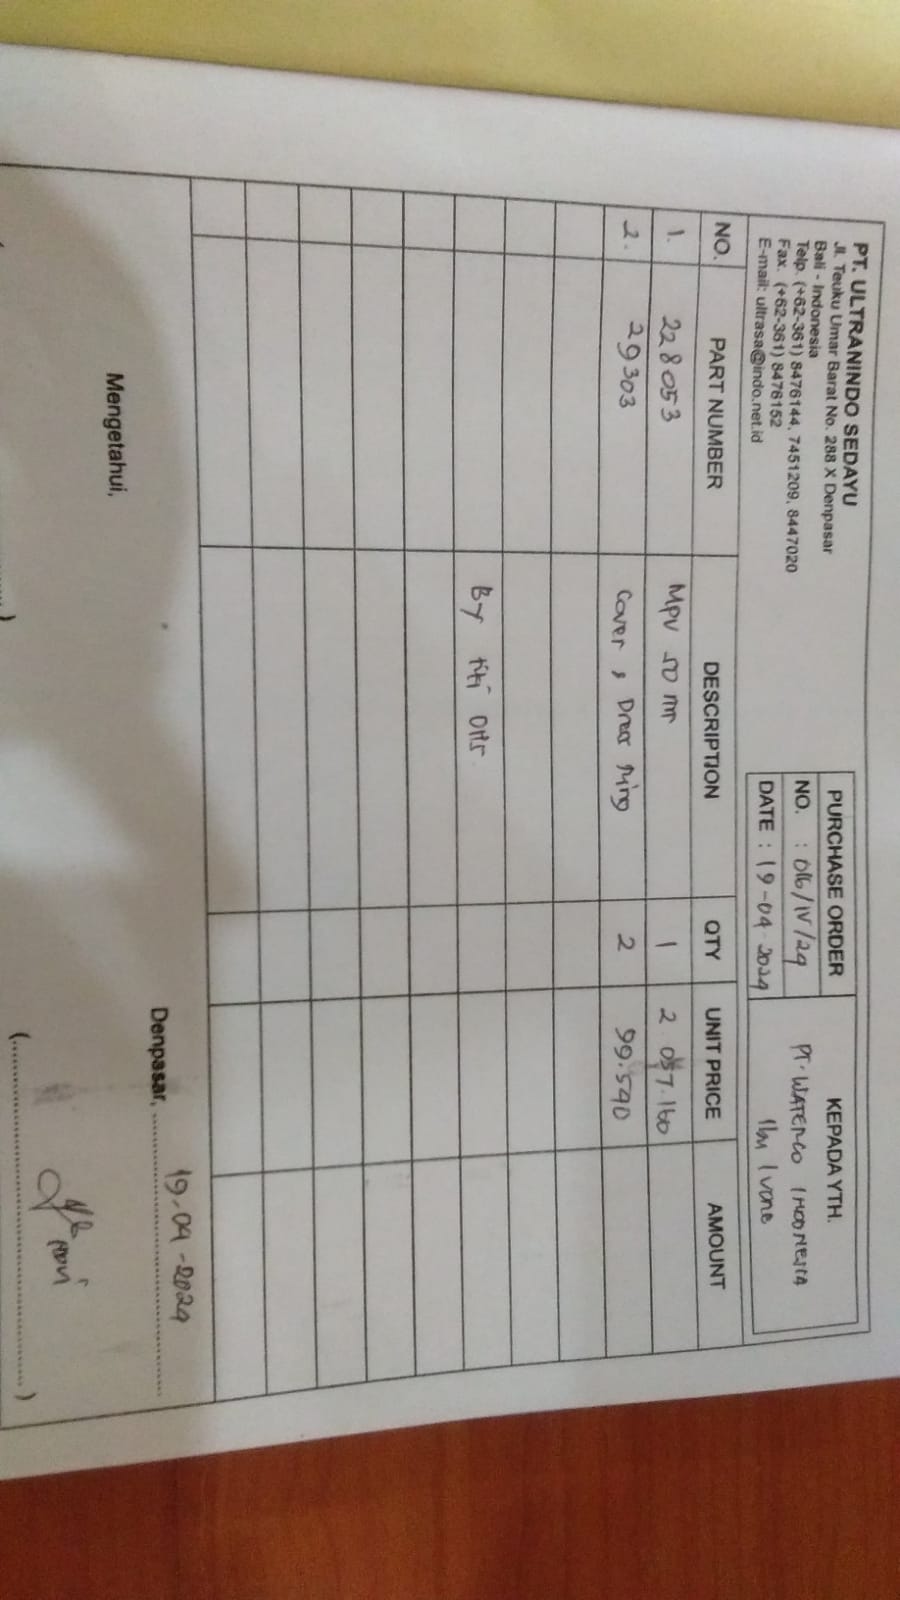 PT. ULTRANINDO SEDAYU
Jl. Teuku Umar Barat No. 288 X Denpasar
Bali - Indonesia
Telp. (+62-361) 8476144, 7451209, 8447020
Fax. (+62-361) 8476152
E-mail: ultrasa@indo.net.id
PURCHASE ORDER
NO. : 016/IV/24
DATE : 19-04-2024
KEPADA YTH.
PT. WATERCO INDONESIA
Ibu Ivone
NO. PART NUMBER DESCRIPTION QTY UNIT PRICE AMOUNT
1. 228053 MPV 50 mm 1 2.057.160
2. 29303 Cover, Dress Ring 2 99.540
By
Mengetahui,
Denpasar, 19-04-2024